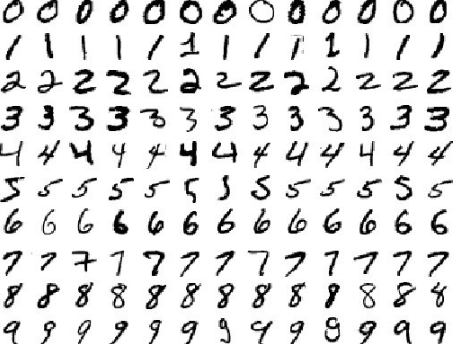 0 0 0 0 0 0 0 0 0 0 0 0 0
1 1 1 1 1 1 1 1 1 1 1 1 1
2 2 2 2 2 2 2 2 2 2 2 2 2
3 3 3 3 3 3 3 3 3 3 3 3 3
4 4 4 4 4 4 4 4 4 4 4 4 4
5 5 5 5 5 5 5 5 5 5 5 5 5
6 6 6 6 6 6 6 6 6 6 6 6 6
7 7 7 7 7 7 7 7 7 7 7 7 7
8 8 8 8 8 8 8 8 8 8 8 8 8
9 9 9 9 9 9 9 9 9 9 9 9 9